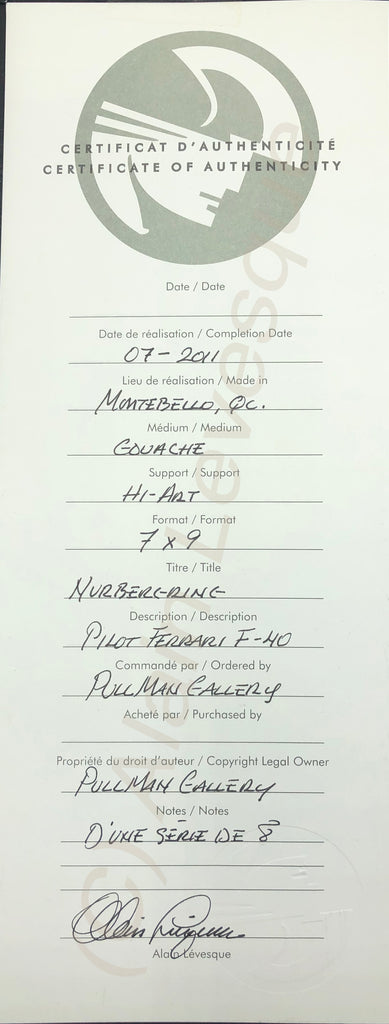 CERTIFICAT D'AUTHENTICITÉ
CERTIFICATE OF AUTHENTICITY
Date / Date
Date de réalisation / Completion Date
07-2011
Lieu de réalisation / Made in
MONTEBELLO, QC.
Médium / Medium
GOUACHE
Support / Support
HI-ART
Format / Format
7 x 9
Titre / Title
NURBERGRING
Description / Description
PILOT FERRARI F-40
Commandé par / Ordered by
PULLMAN GALLERY
Acheté par / Purchased by
Propriété du droit d'auteur / Copyright Legal Owner
PULLMAN GALLERY
Notes / Notes
D'UNE SÉRIE DE 8
Alain Lévesque
Alain Lévesque
(c) Alain Levesque